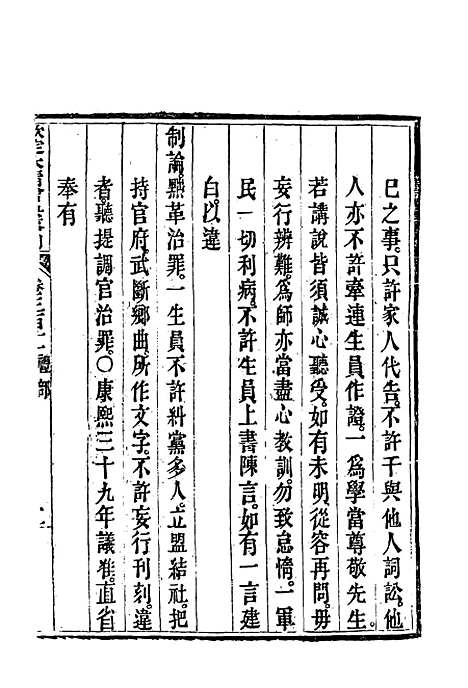 己之事。只許家人代告。不許干與他人詞訟。他
人亦不許牽連生員作證。一爲學當尊敬先生。
若講說皆須誠心聽受。如有未明。從容再問。毋
妄行辨難。爲師亦當盡心教訓。勿致怠惰。一軍
民一切利病。不許生員上書陳言。如有一言建
白。以違
制論。黜革治罪。一生員不許糾黨多人。立盟結社。把
持官府。武斷鄉曲。所作文字。不許妄行刊刻。違
者。聽提調官治罪。○康熙三十九年議准。直省
奉有
禮部